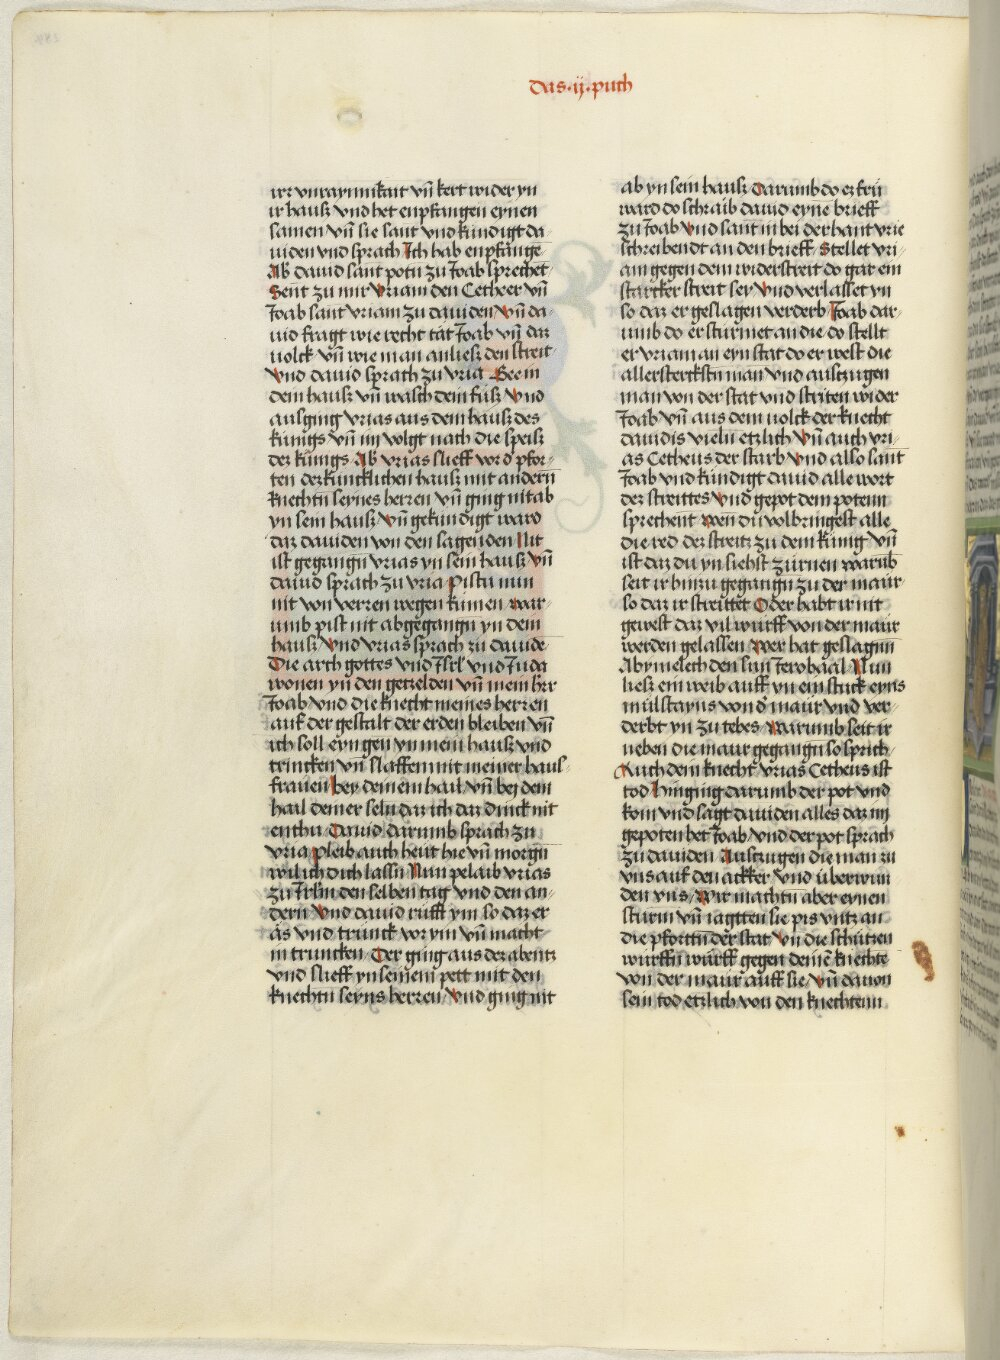 das · ij · puch
irr vnraynnikait vn̄ kert wider yn
ir hauß vnd het enpfangen eynen
samen vn̄ sie sant vnd kündigt da/
uiden vnd sprach Ich hab enpfange
Ab dauid sant potn zu Joab sprechet
Sent zu mir vriam den Cetheer vn̄
Joab sant vriam zu dauiden vn̄ da/
uid fragt wie recht tät Joab vn̄ daz
uolck vn̄ wie man anließ den streit
vnd dauid sprach zu vria Gee in
dein hauß vn̄ wasch dein füß vnd
ausging vrias aus dem hauß des
künigs vn̄ im volgt nach die speiß
dez künigs Ab vrias slieff vor d pfor/
ten dez küncklichen hauß mit andern
knechtn seynes herren vn̄ ging nit ab
yn sein hauß vn̄ gekündigt ward
daz dauiden von den sagenden Nit
ist gegangn vrias yn sein hauß vn̄
dauid sprach zu vria Pistu nun
nit von verren wegen kümen war/
umb pist nit abgegangn yn dein
hauß vnd vrias sprach zu dauide
Die arch gottes vnd Isrl vnd Juda
wonen yn den getzelden vn̄ mein hrr
Joab vnd die knecht meines herren
auf der gestalt der erden bleiben vn̄
ich soll eyn gen yn mein hauß vnd
trincken vn̄ slaffen mit meiner haus/
frauen bey deinem hail vn̄ bej dem
hail deiner seln daz ich daz dinck nit
enthu Dauid darumb sprach zu
vria pleib auch heüt hie vn̄ morgn
wil ich dich lassn Nun pelaib vrias
zu Irlm den selben tag vnd den an/
dern vnd dauid rüfft ym so daz er
äs vnd trunck vor ym vn̄ macht
in truncken Der ging aus dez abentz
vnd slieff yn seinem pett mit den
knechtn seyns herren vnd ging nit
ab yn sein hauß Darumb do ez frü
ward do schraib dauid eyne brieff
zu Joab vnd sant in bei der hant vrie
schreibendt an den brieff Stellet vri/
am gegen dem widerstreit do gar ein
starcker streit sey vnd verlasset yn
so daz er geslagen verderb Joab dar/
umb do er stürmet an die do stellt
er vriam an eyn stat do er west die
allersterckstn man vnd austzugen
man von der stat vnd striten wider
Joab vn̄ aus dem uolck der knecht
dauidis vieln etzlich vn̄ auch vri/
as Cetheus der starb vnd also sant
Joab vnd kündigt dauid alle wort
dez streittes vnd gepot dem potenn
sprechent wen du volbringest alle
die red dez streitz zu dem künig vn̄
ist daz du yn siehst zürnen warūb
seit ir hinzu gegangn zu der maur
so daz ir streittet Oder habt ir nit
gewest daz vil würff von der maur
werden gelassen wer hat geslagnn
Abymelech den sun Jerobaal Nun
ließ ein weib auff yn ein stuck eyns
mülstayns von d maur vnd ver/
derbt yn zu tebes warumb seit ir
neben die maur gegangn so sprich
Auch dein knecht vrias Cetheus ist
tod Hinging darumb der pot vnd
kom vnd sagt dauiden alles daz im
gepoten het Joab vnd der pot sprach
zu dauiden Austzugen die man zu
vns auf den acker vnd überwun
den vns wir machtn aber eynen
sturm vn̄ iagtten sie pis vntz an
die pforttn der stat vn̄ die schützen
wurffn würff gegen deine knechte
von der maur auff sie vn̄ dauon
sein tod etzlich von den knechtenn